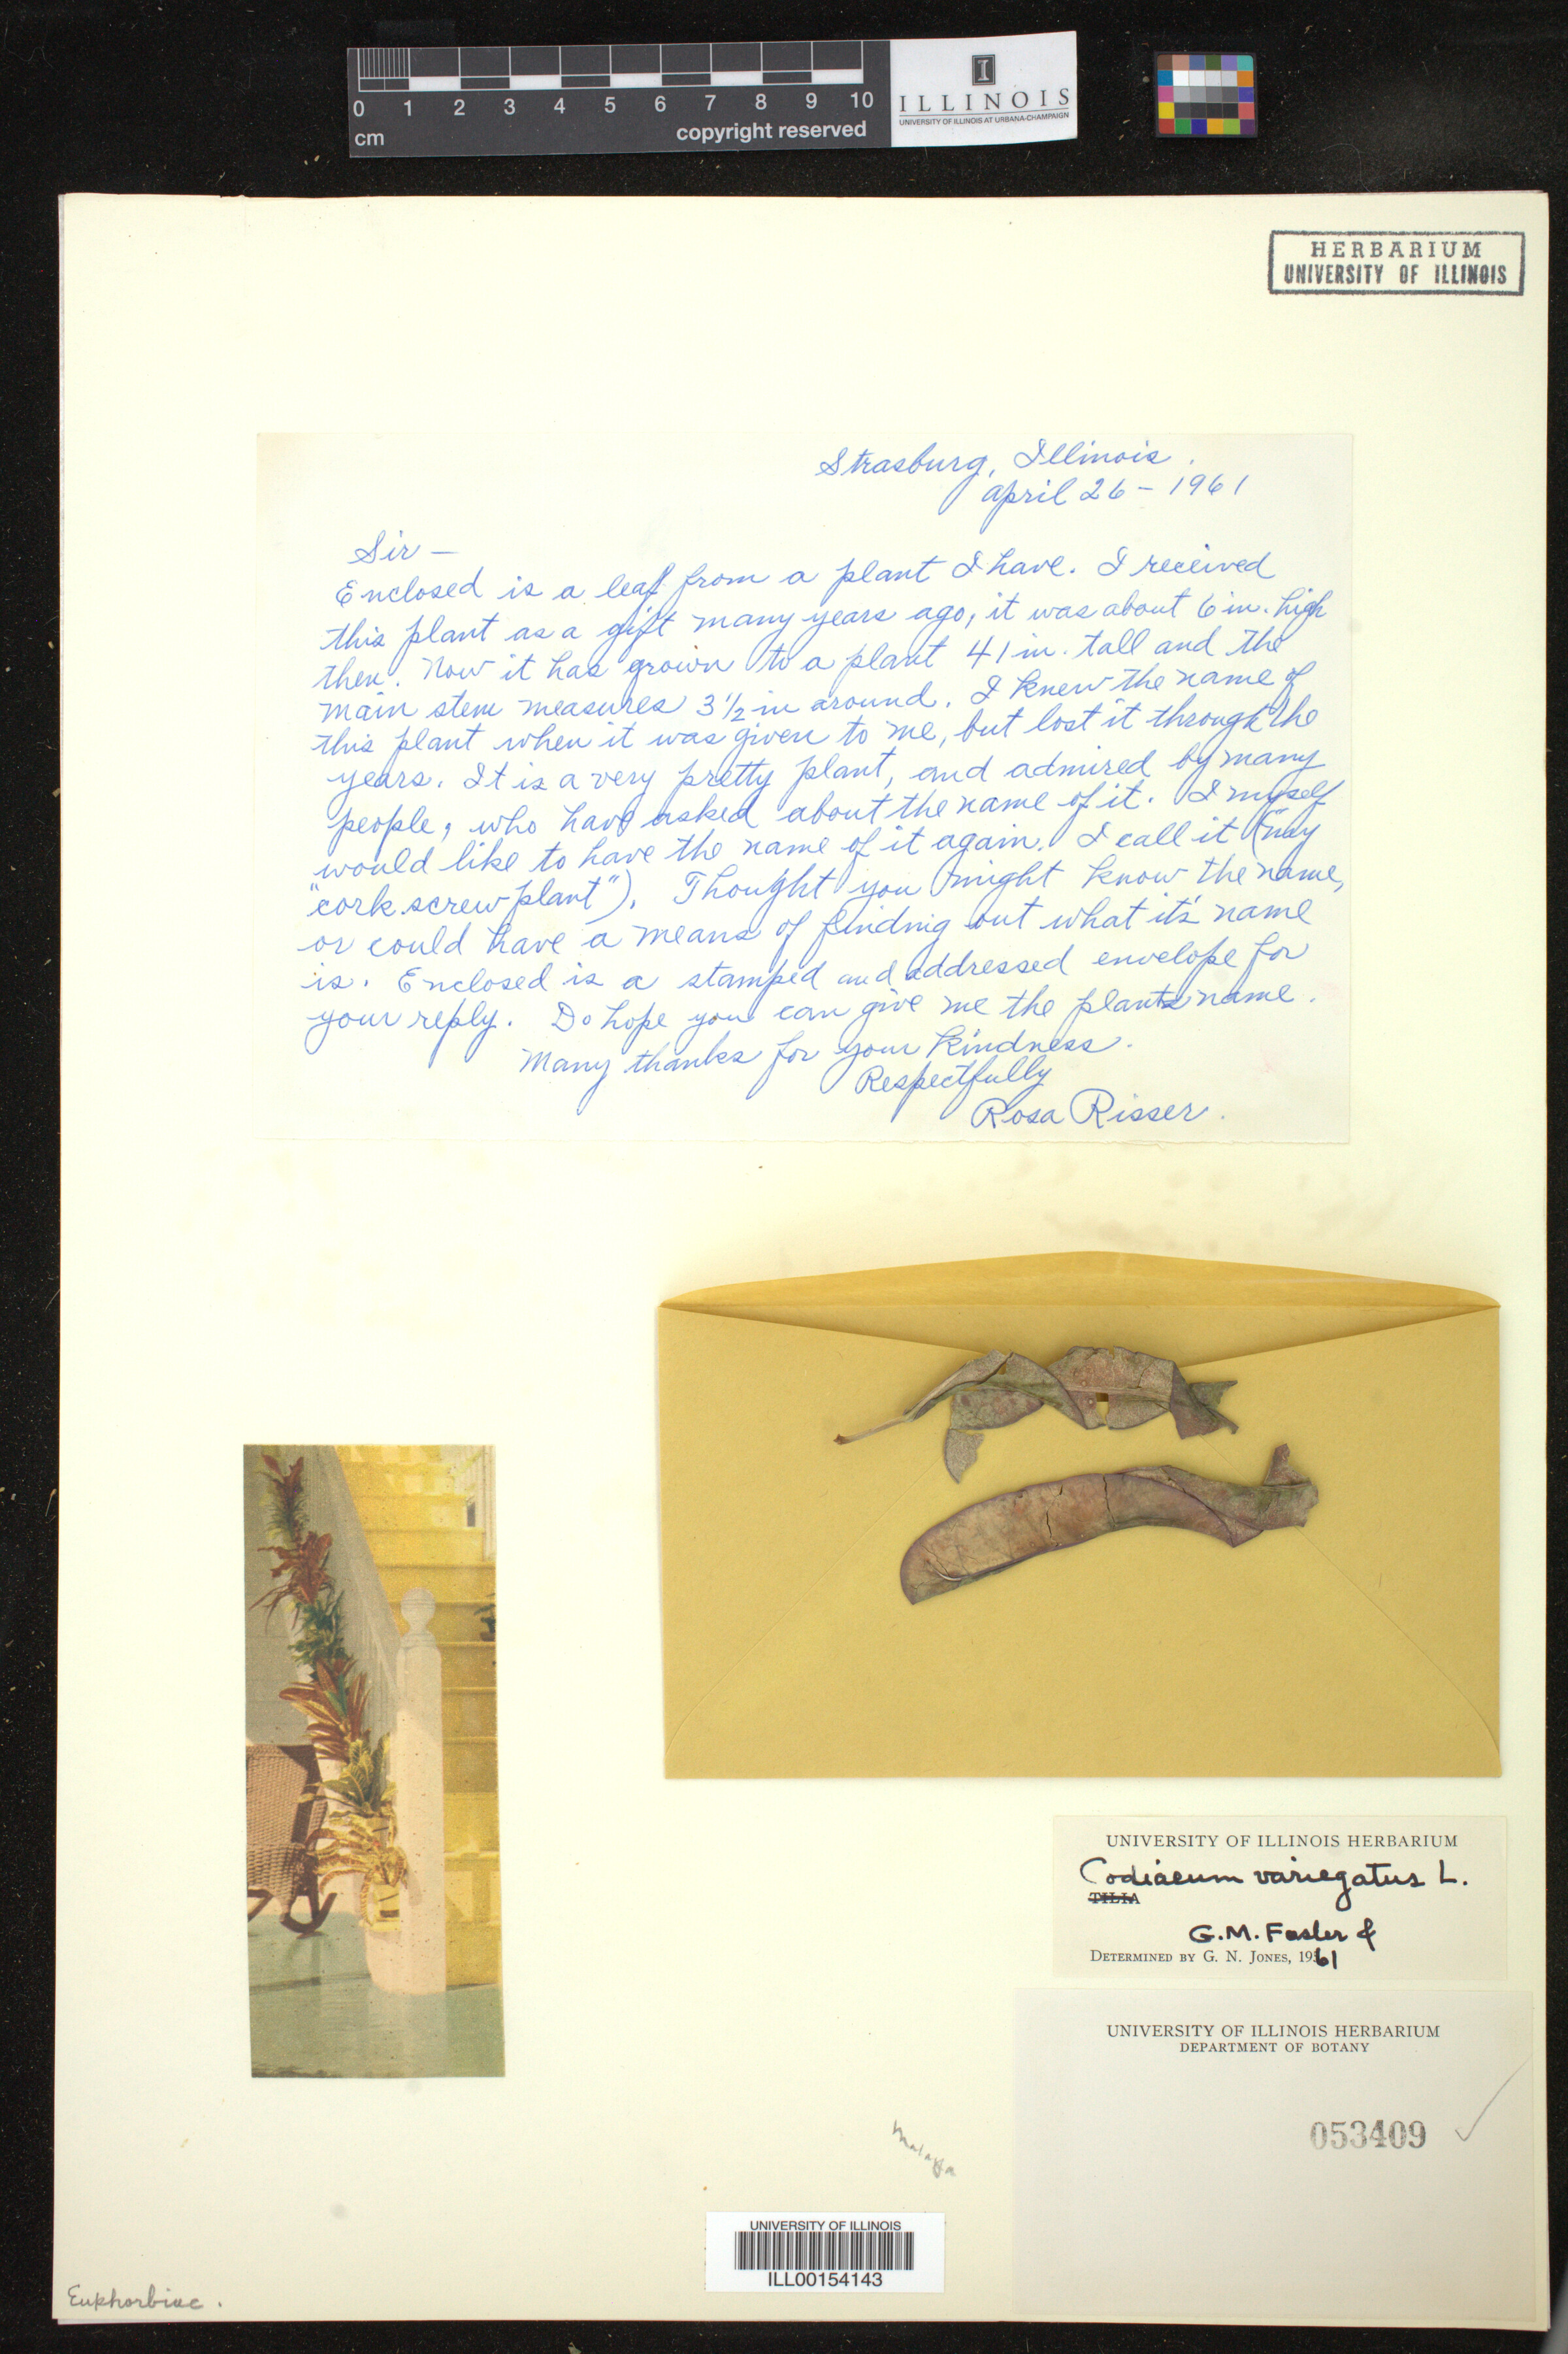 0 1 2 3 4 5 6 7 8 9 10
cm
copyright reserved
I
ILLINOIS
UNIVERSITY OF ILLINOIS AT URBANA-CHAMPAIGN
HERBARIUM
UNIVERSITY OF ILLINOIS
Strasburg, Illinois.
april 26 - 1961
Sir -
Enclosed is a leaf from a plant I have. I received
this plant as a gift many years ago, it was about 6 in. high
then. Now it has grown to a plant 41 in. tall and the
main stem measures 3 1/2 in around. I knew the name of
this plant when it was given to me, but lost it through the
years. It is a very pretty plant, and admired by many
people, who have asked about the name of it. I myself
would like to have the name of it again. I call it (my
"cork screw plant"). Thought you might know the name,
or could have a means of finding out what it's name
is. Enclosed is a stamped and addressed envelope for
your reply. Do hope you can give me the plants name.
Many thanks for your kindness.
Respectfully
Rosa Risser.
UNIVERSITY OF ILLINOIS HERBARIUM
Codiaeum variegatus L.
TILIA
G.M. Fosler &
DETERMINED BY G. N. JONES, 1961
UNIVERSITY OF ILLINOIS HERBARIUM
DEPARTMENT OF BOTANY
053409
Malaya
UNIVERSITY OF ILLINOIS
ILL00154143
Euphorbiac.